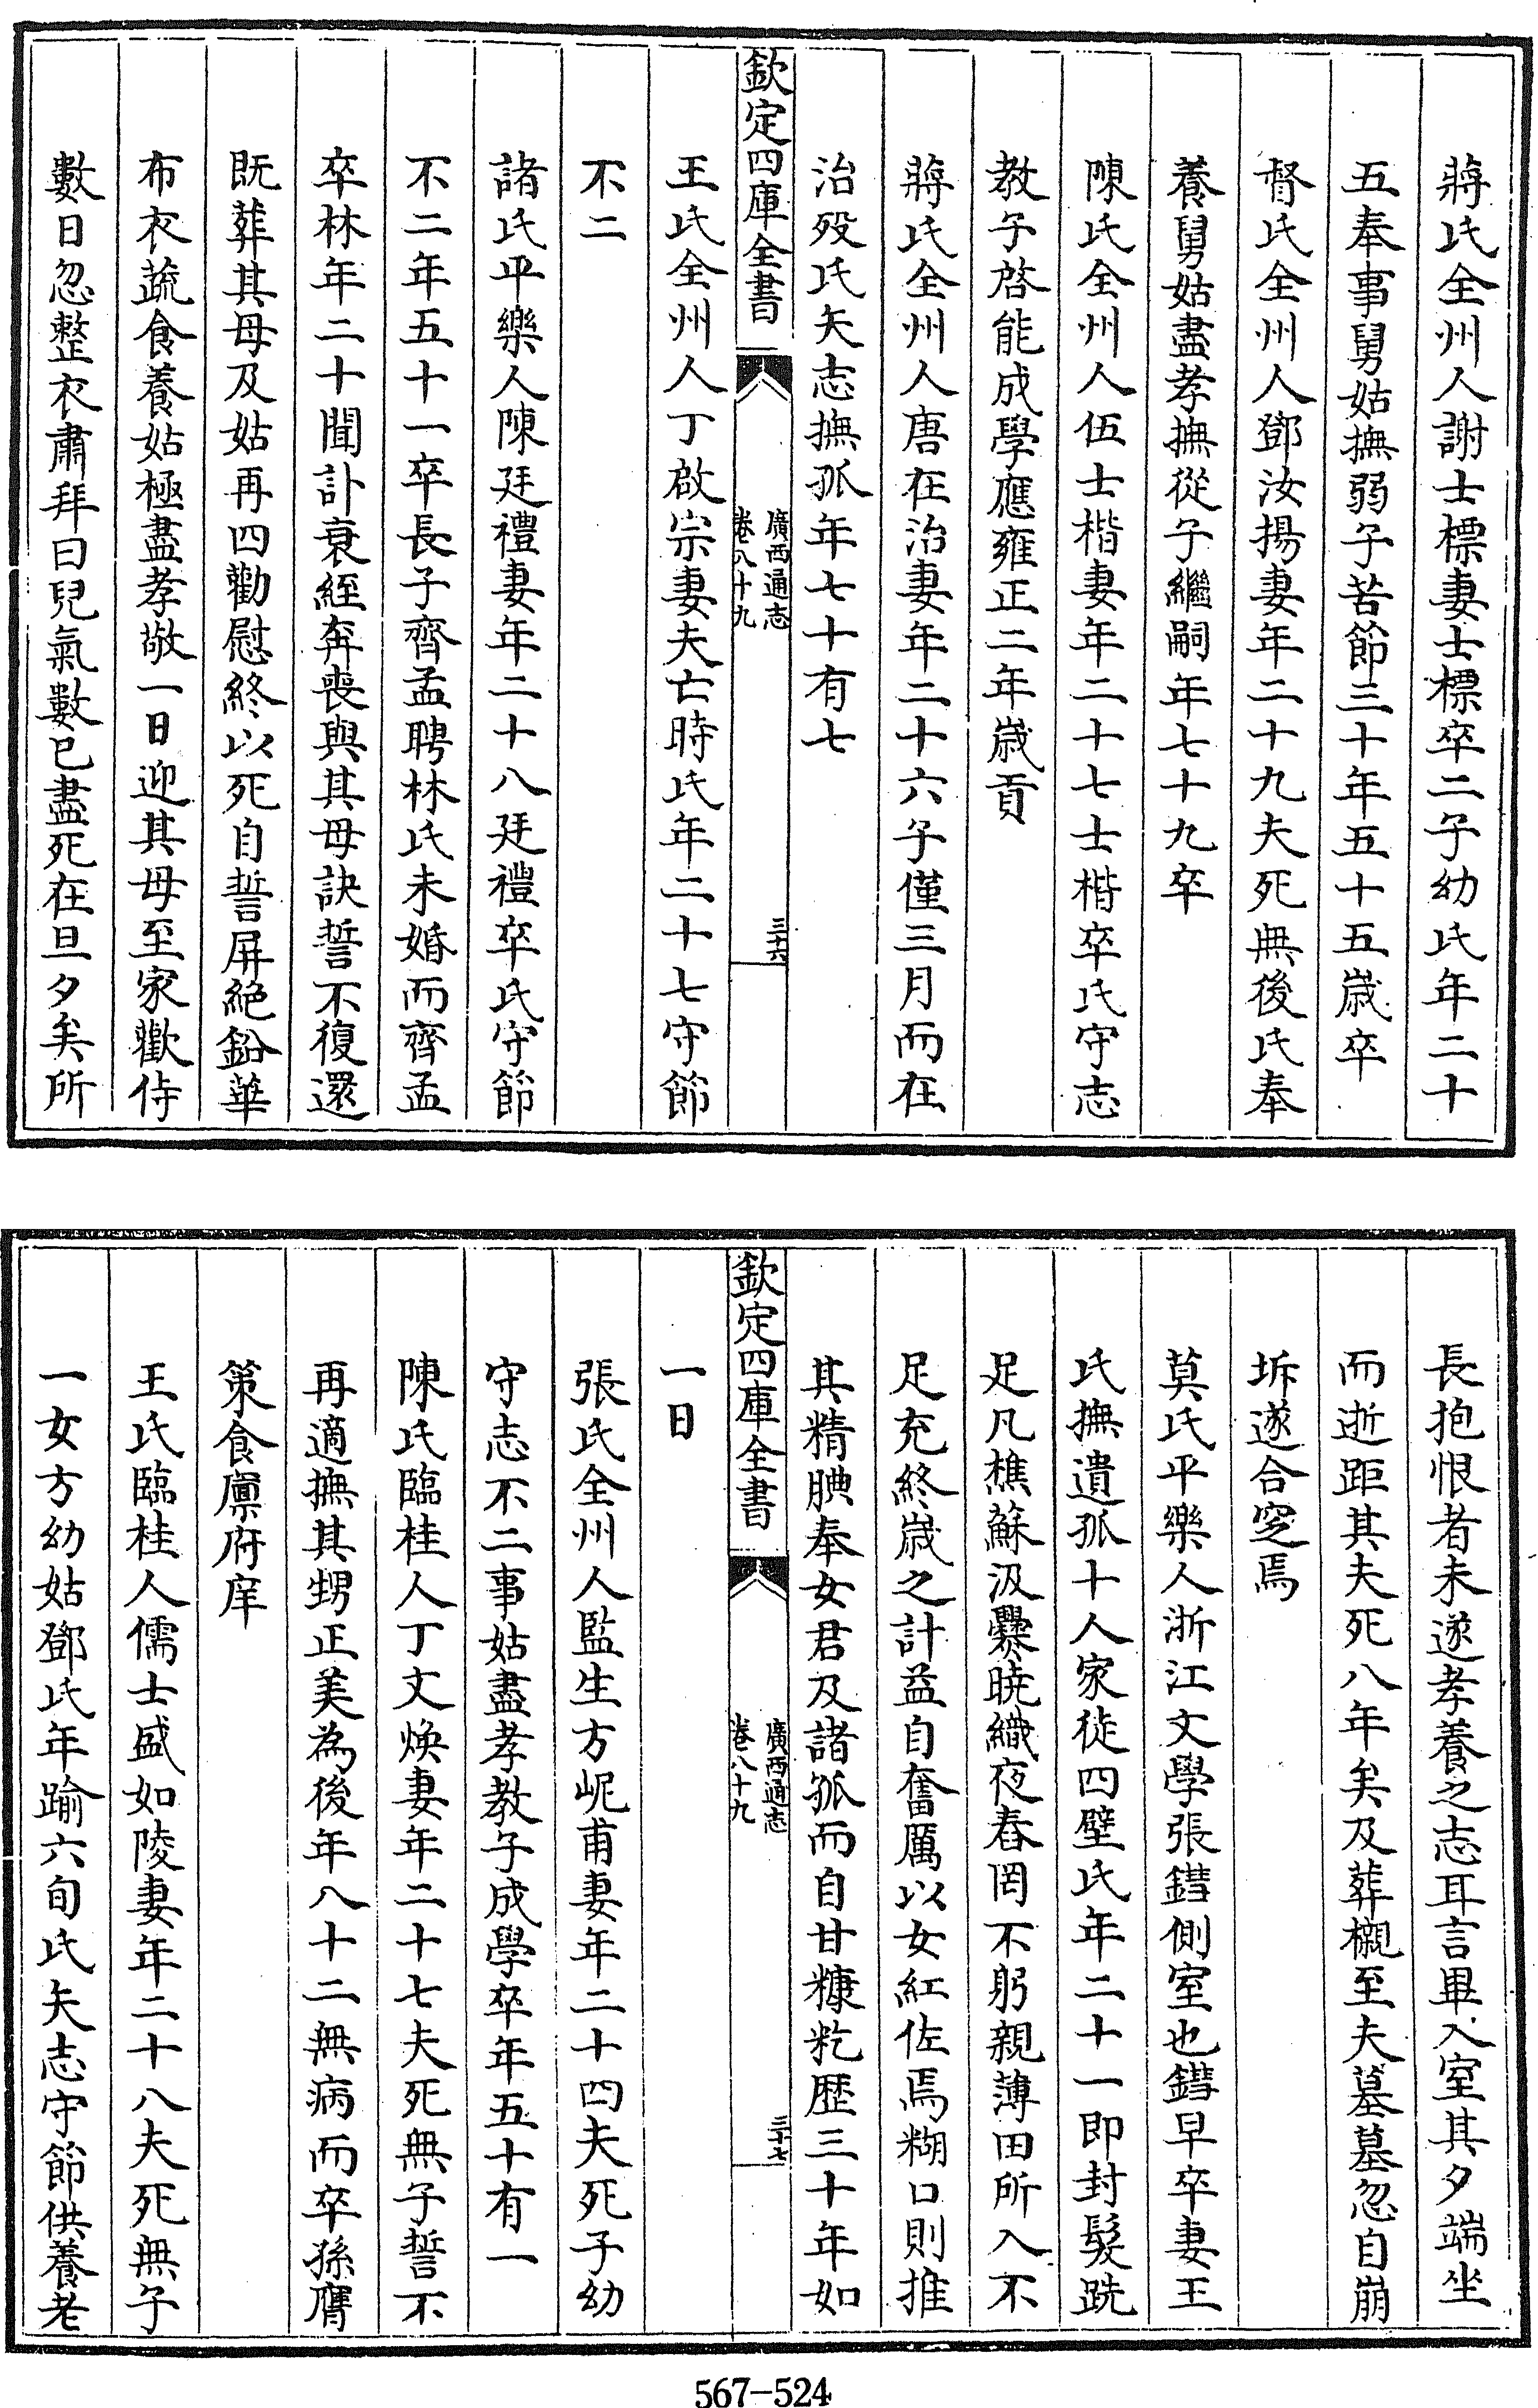 蔣氏全州人謝士標妻士標卒二子幼氏年二十
五奉事舅姑撫弱子苦節三十年五十五歲卒
督氏全州人鄧汝揚妻年二十九夫死無後氏奉
養舅姑盡孝撫從子繼嗣年七十九卒
陳氏全州人伍士楷妻年二十七士楷卒氏守志
教子啓能成學應雍正二年歲貢
蔣氏全州人唐在治妻年二十六子僅三月而在
治歿氏矢志撫孤年七十有七
欽定四庫全書
廣西通志
卷八十九
三十六
王氏全州人丁啟宗妻夫亡時氏年二十七守節
不二
諸氏平樂人陳廷禮妻年二十八廷禮卒氏守節
不二年五十一卒長子齊孟聘林氏未婚而齊孟
卒林年二十聞訃衰絰奔喪與其母訣誓不復還
既葬其母及姑再四勸慰終以死自誓屏絕鉛華
布衣蔬食養姑極盡孝敬一日迎其母至家歡侍
數日忽整衣肅拜曰兒氣數已盡死在旦夕矣所
長抱恨者未遂孝養之志耳言畢入室其夕端坐
而逝距其夫死八年矣及葬櫬至夫墓墓忽自崩
坼遂合窆焉
莫氏平樂人浙江文學張鏳側室也鏳早卒妻王
氏撫遺孤十人家徒四壁氏年二十一即封髮跣
足凡樵蘇汲爨曉織夜舂罔不躬親薄田所入不
足充終歲之計益自奮厲以女紅佐焉糊口則推
其精腆奉女君及諸孤而自甘糠籺歷三十年如
欽定四庫全書
廣西通志
卷八十九
三十七
一日
張氏全州人監生方岠甫妻年二十四夫死子幼
守志不二事姑盡孝教子成學卒年五十有一
陳氏臨桂人丁文煥妻年二十七夫死無子誓不
再適撫其甥正美為後年八十二無病而卒孫膺
策食廩府庠
王氏臨桂人儒士盛如陵妻年二十八夫死無子
一女方幼姑鄧氏年踰六旬氏矢志守節供養老
567-524